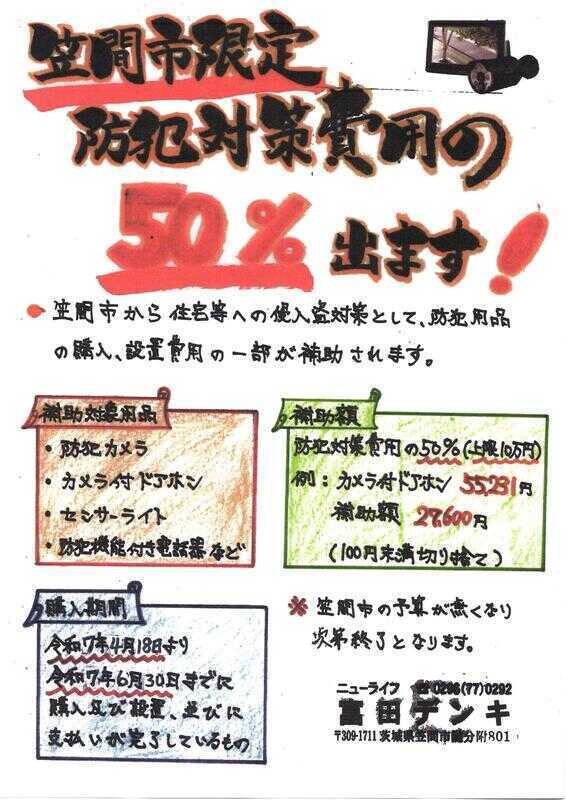 笠間市限定
防犯対策費用の
50％出ます！
笠間市から住宅等への侵入盗対策として、防犯用品
の購入、設置費用の一部が補助されます。
補助対象用品
・防犯カメラ
・カメラ付ドアホン
・センサーライト
・防犯機能付き電話器など
補助額
防犯対策費用の50％(上限10万円)
例：カメラ付ドアホン 55,231円
補助額 27,600円
(100円末満切り捨て)
購入期間
令和7年4月18日より
令和7年6月30日までに
購入及び設置、並びに
支払いが完了しているもの
※ 笠間市の予算が無くなり
次第終了となります。
ニューライフ ☎0296(77)0292
富田デンキ
〒309-1711 茨城県笠間市随分附801